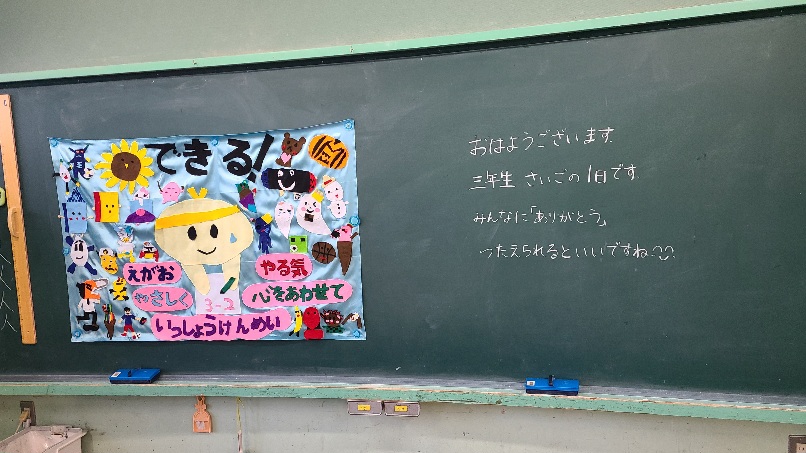 できる!
えがお
やる気
やさしく
心をあわせて
3-2
いっしょうけんめい
おはようございます。
三年生 さいごの1日です。
みんなに「ありがとう」
つたえられるといいですね